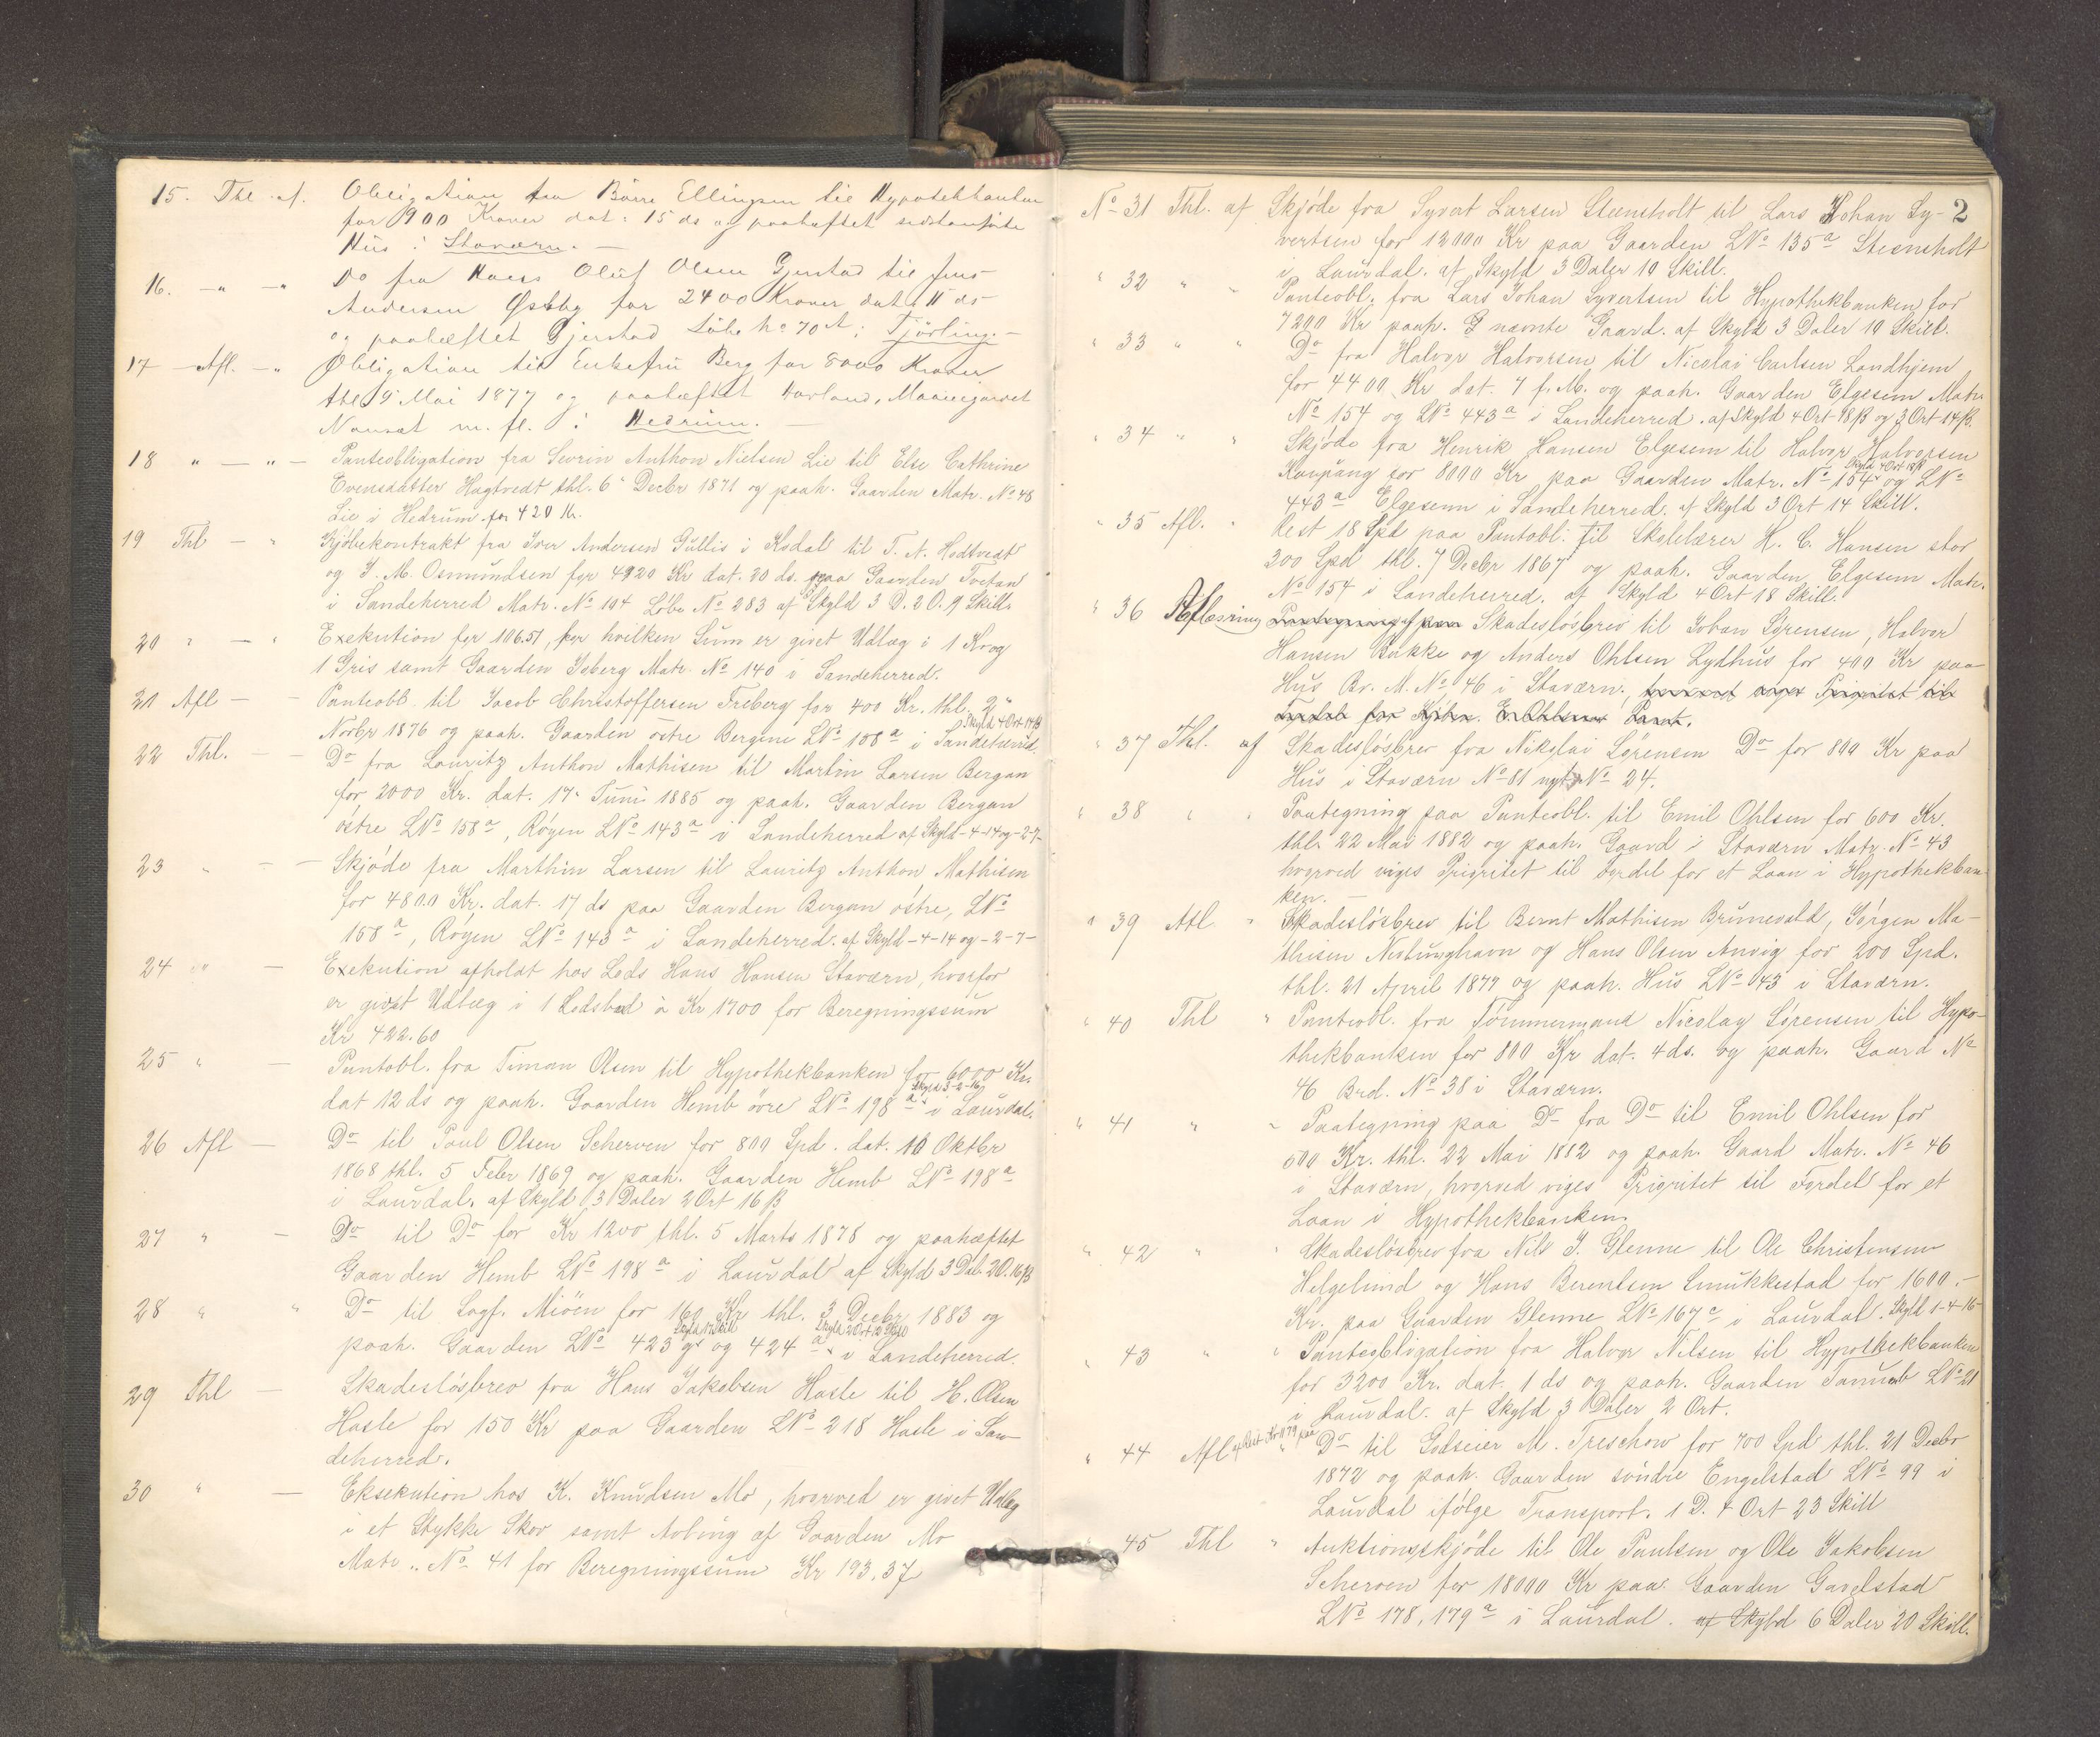 15. Thl. af. Obligation fra Börre Ellingsen til Hypothekbanken
for 900 Kroner dat: 15 ds og paaheftet sidstanførte
Hus i Staværn. —
16. — " — " Do fra Hans Oluf Olsen Gjerstad til Jens
Andersen Østby for 2400 Kroner dat. 11 ds
og paaheftet Gjerstad Løbe No 70 A i Tjörling. —
17 — Afl. — " Obligation til Enkefru Berg for 8000 Kroner
thl. 5 Mai 1877 og paaheftet
Nanset m. fl. i Hedrum. —
18 " — " — Panteobligation fra Sevrin Anthon Nielsen Lie til Else Cathrine
Evensdatter Hagtvedt thl. 6 Decbr 1871 og paah. Gaarden Matr. No 48
Lie i Hedrum for 420 Kr.
19 Thl — " Kjöbekontrakt fra Iver Andersen Gullis i Kodal til T. A. Hedtvedt
og J. M. Osmundsen for 4920 Kr dat. 20 ds. paa Gaarden Tvetan
i Sandeherred Matr. No 104 Löbe No 283 af Skyld 3 D. 2 O. 9 Skill.
20 " — " Exekution for 106.51, for hvilken Sum er givet Udlæg i 1 Ko og
1 Gris samt Gaarden Isberg Matr. No 140 i Sandeherred.
21 Afl — — Panteobl. til Jacob Christoffersen Freberg for 400 Kr. thl. 2
Novbr 1876 og paah. Gaarden østre Bergene LNo 108 a i Sandeherred. Skyld 4 Ort 14 β
22 Thl. — — Do fra Lauritz Anthon Mathisen til Martin Larsen Bergan
for 2000 Kr. dat. 17 Juni 1885 og paah. Gaarden Bergan
östre LNo 158 a, Röyen LNo 143 a i Sandeherred af Skyld – 4 – 14 og – 2 – 7 –
23 " — — Skjöde fra Marthin Larsen til Lauritz Anthon Mathisen
for 4800 Kr. dat. 17 ds paa Gaarden Bergan östre, LNo
158 a, Röyen LNo 143 a i Sandeherred. af Skyld – 4 – 14 og – 2 – 7 –
24 " — Exekution afholdt hos Lods Hans Hansen Staværn, hvorfor
er givet Udlæg i 1 Lodsbaad à Kr 1700 for Beregningssum
Kr 422.60
25 " — Pantobl. fra Timan Olsen til Hypothekbanken for 6000 Kr.
dat 12 ds og paah. Gaarden Hemb övre LNo 198 a Skyld 3-2-16 i Laurdal.
26 Afl — Do til Poul Olsen Scherven for 800 Spd. dat. 10 Oktbr
1868 thl. 5 Febr 1869 og paah. Gaarden Hemb LNo 198 a
i Laurdal. af Skyld 3 Daler 2 Ort 16 β
27 " — Do til Do for Kr 1200 thl. 5 Marts 1878 og paahæftet
Gaarden Hemb LNo 198 a i Laurdal af Skyld 3 Dal. 2 O. 16 β
28 " " Do til Sagf. Miöen for 160 Kr thl. 3 Decbr 1883 og
paah. Gaarden LNo 423 og 424 a i Sandeherred.
29 Thl — Skadeslösbrev fra Hans Jakobsen Hasle til H. Olsen
Hasle for 150 Kr paa Gaarden LNo 218 Hasle i San-
deherred.
30 " — Eksekution hos K. Knudsen Mo, hvorved er givet Udlæg
i et Stykke Skov samt Avling af Gaarden Mo
Matr. No 41 for Beregningssum Kr 193.37
2
No 31 Thl. af Skjöde fra Syvert Larsen Steensholt til Lars Johan Sy-
vertsen for 12000 Kr paa Gaarden LNo 135 a Steensholt
i Laurdal. af Skyld 3 Daler 10 Skill.
" 32 " " Panteobl. fra Lars Johan Syvertsen til Hypothekbanken for
7200 Kr paah. nævnte Gaard. af Skyld 3 Daler 10 Skill.
" 33 " " Do fra Halvor Halvorsen til Nicolai Carlsen Landhjem
for 4400 Kr dat. 7 f. M. og paah. Gaarden Elgesem Matr.
No 154 og LNo 443 a i Sandeherred. af Skyld 4 Ort 18 β og 3 Ort 14 β.
" 34 " " Skjöde fra Henrik Hansen Elgesem til Halvor Halvorsen
Kaupang for 8000 Kr paa Gaarden Matr. No 154 Skyld 4 Ort 18 β og LNo
443 a Elgesem i Sandeherred. af Skyld 3 Ort 14 Skill.
" 35 Afl. " Rest 18 Spd paa Pantobl. til Skolelærer H. C. Hansen stor
200 Spd thl. 7 Decbr 1867 og paah. Gaarden Elgesem Matr.
No 154 i Sandeherred. af Skyld 4 Ort 18 Skill.
" 36 Aflæsning Paategning af paa Skadeslösbrev til Johan Sörensen, Halvor
Hansen Bukke og Anders Ohlsen Lydhus for 400 Kr paa
Hus Br. M. No 46 i Staværn, hvorved viges Prioritet til
Fordel for Kjöbm. E. Ohlsens Pant.
" 37 Thl. af Skadeslösbrev fra Nikolai Sörensen Do for 800 Kr paa
Hus i Staværn No 81 nyt No 24.
" 38 " " Paategning paa Panteobl. til Emil Ohlsen for 600 Kr.
thl. 22 Mai 1882 og paah. Gaard i Staværn Matr. No 43
hvorved viges Prioritet til Fordel for et Laan i Hypothekban-
ken. —
" 39 Afl " Skadeslösbrev til Bernt Mathisen Brunevald, Jörgen Ma-
thisen Nevlunghavn og Hans Olsen Anvig for 200 Spd.
thl. 21 April 1877 og paah. Hus LNo 43 i Staværn.
" 40 Thl " Panteobl. fra Tömmermand Nicolay Sörensen til Hypo-
thekbanken for 800 Kr dat. 4 ds. og paah. Gaard No
46 Brd. No 38 i Staværn.
" 41 " " Paategning paa Do fra Do til Emil Ohlsen for
600 Kr. thl. 22 Mai 1882 og paah. Gaard Matr. No 46
i Staværn, hvorved viges Prioritet til Fordel for et
Laan i Hypothekbanken.
" 42 " " Skadeslösbrev fra Nils J. Glenne til Ole Christensen
Helgelund og Hans Berentsen Smukkestad for 1600. –
Kr. paa Gaarden Glenne LNo 167 c i Laurdal. Skyld 1-4-16
" 43 " " Panteobligation fra Halvor Nilsen til Hypothekbanken
for 3200 Kr. dat. 1 ds og paah. Gaarden Tanum LNo 21
i Laurdal. af Skyld 3 Daler 2 Ort.
" 44 Afl af Rest Kr 1179 paa Do til Godseier M. Treschow for 700 Spd thl. 21 Decbr
1872 og paah. Gaarden söndre Engelstad LNo 99 i
Laurdal ifölge Transport. 1 D. 4 Ort 23 Skill
" 45 Thl " Auktionsskjöde til Ole Paulsen og Ole Jakobsen
Scherven for 18000 Kr paa Gaarden Gavelstad
LNo 178, 179 a i Laurdal. af Skyld 6 Daler 20 Skill.